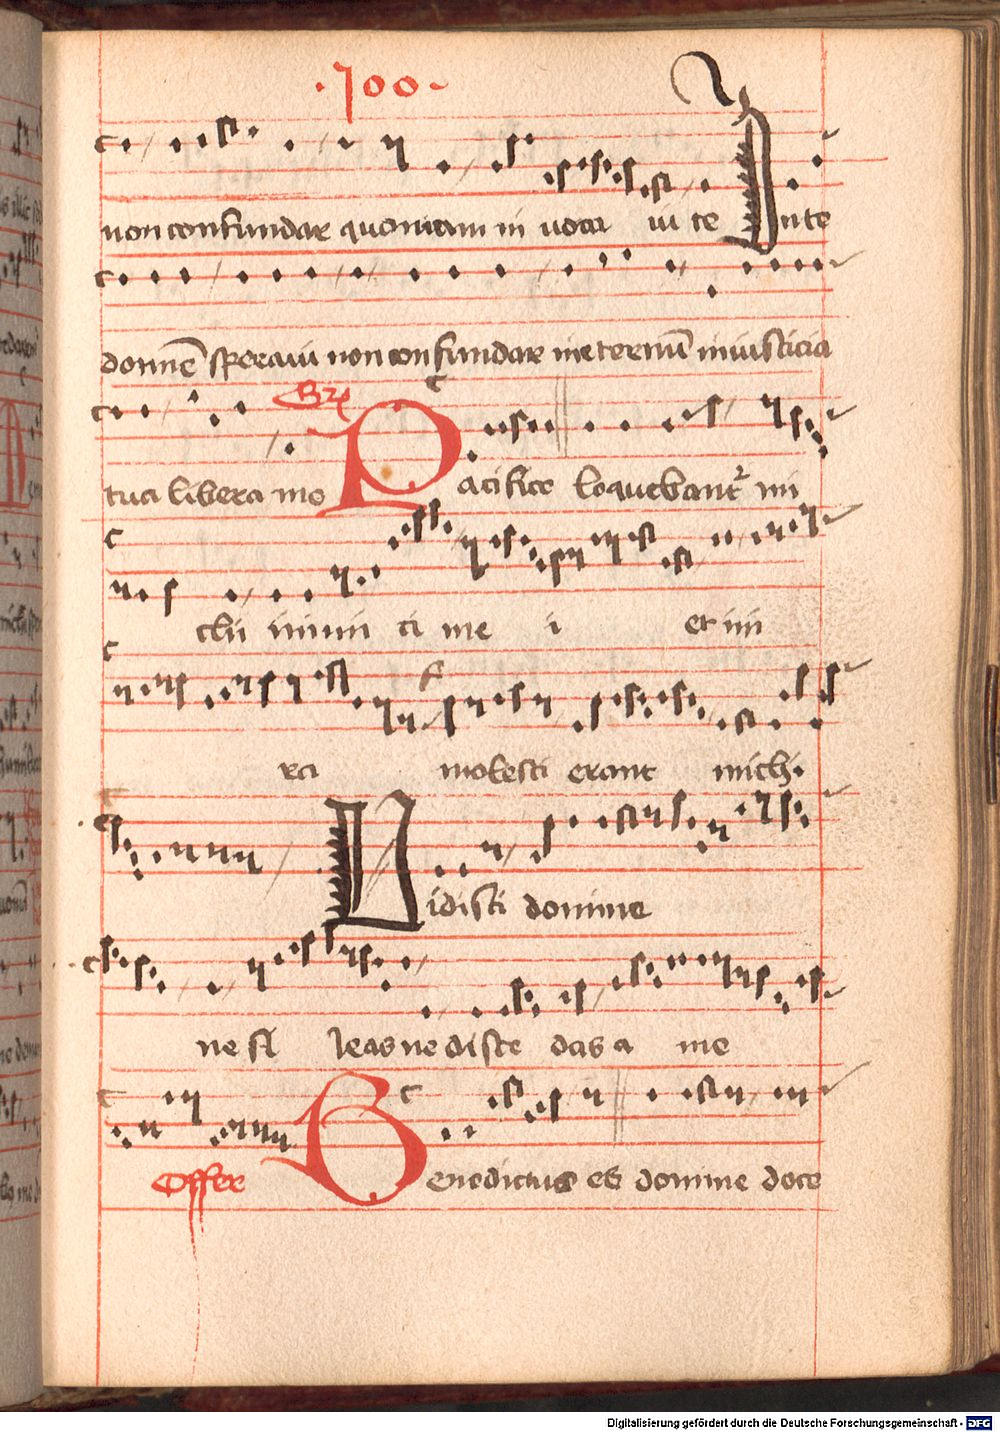 ·100·
non confundar quoniam in voca ui te Inte
domine speraui non confundar in eternum in iusticia
tua libera me Gr Pacifice loquebantr mi
chi inimi ci me i et in
ra molesti erant michi
Uidisti domine
ne si leas ne disce das a me
Offer Benedictus es domine doce
Digitalisierung gefördert durch die Deutsche Forschungsgemeinschaft - DFG